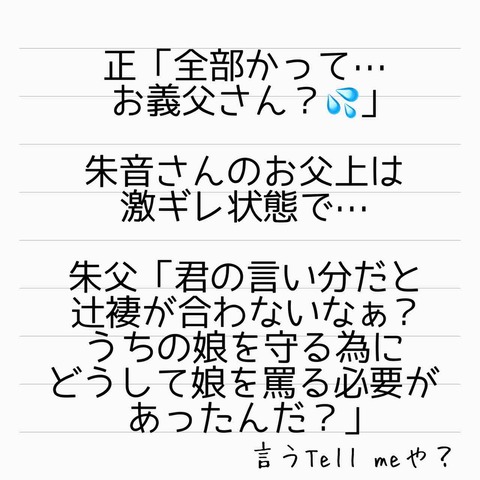 正「全部かって…
お義父さん？💦」
朱音さんのお父上は
激ギレ状態で…
朱父「君の言い分だと
辻褄が合わないなぁ？
うちの娘を守る為に
どうして娘を罵る必要が
あったんだ？」
言うTell meや？